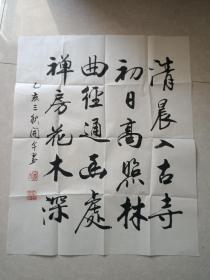 清晨入古寺
初日高照林
曲径通幽處
禅房花木深
己亥之秋